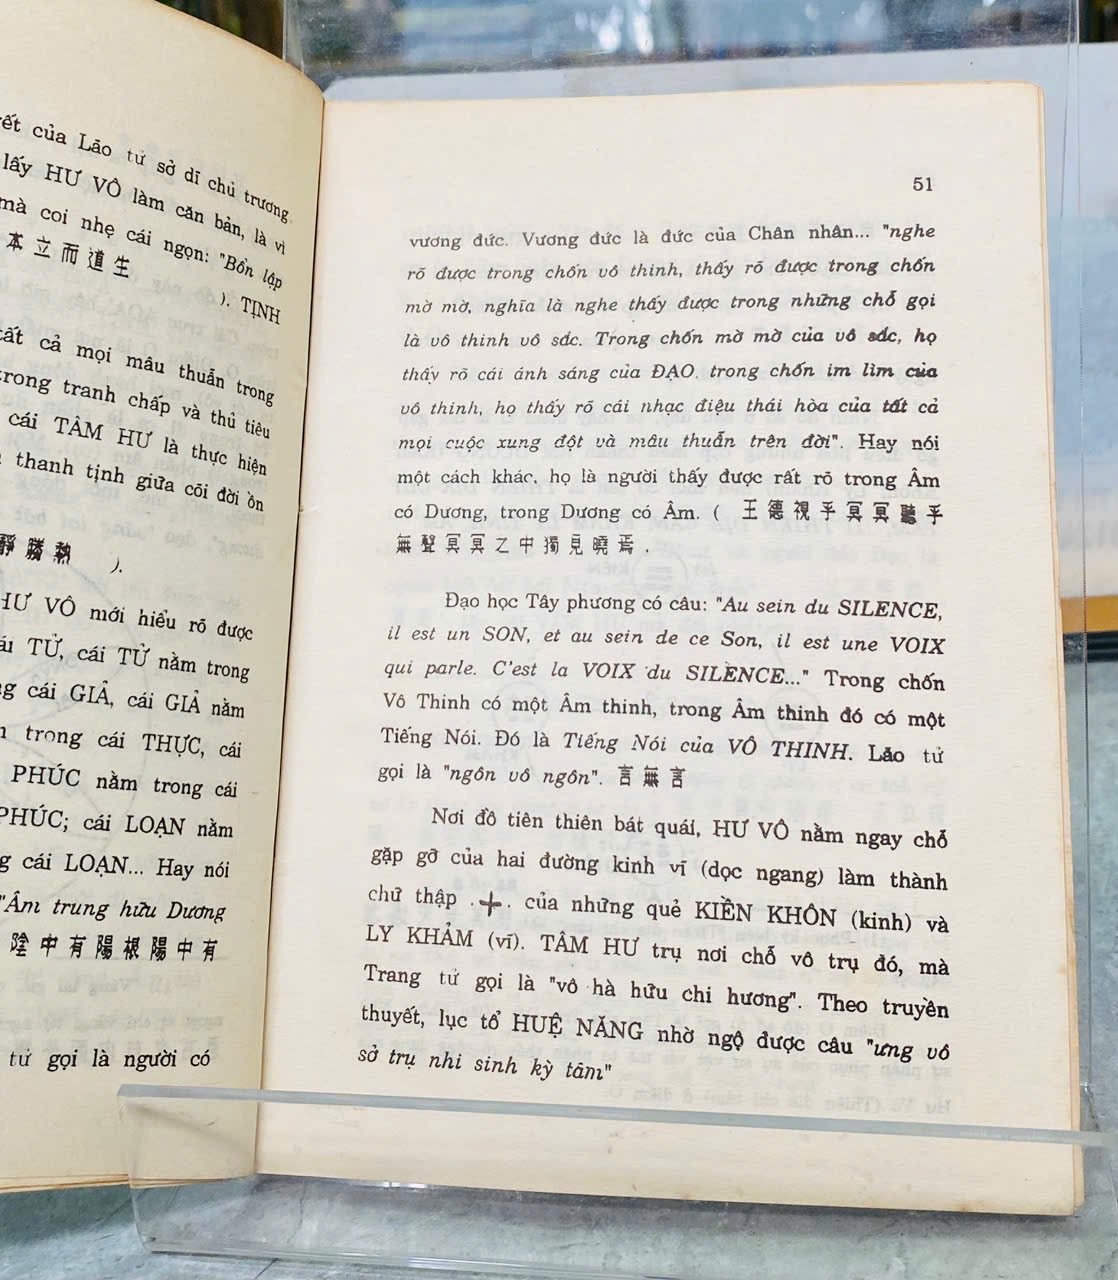 của Lão tử sở dĩ chủ trương
lấy HƯ VÔ làm căn bản, là vì
mà coi nhẹ cái ngọn: "Bổn lập
本立而道生 ). TỊNH
tất cả mọi mâu thuẫn trong
trong tranh chấp và thủ tiêu
cái TÂM HƯ là thực hiện
thanh tịnh giữa cõi đời ồn
靜勝熱 ).
HƯ VÔ mới hiểu rõ được
cái TỬ, cái TỬ nằm trong
cái GIẢ, cái GIẢ nằm
trong cái THỰC, cái
PHÚC nằm trong cái
PHÚC; cái LOẠN nằm
cái LOẠN... Hay nói
"Âm trung hữu Dương
陰中有陽根陽中有
tử gọi là người có
51
vương đức. Vương đức là đức của Chân nhân... "nghe
rõ được trong chốn vô thinh, thấy rõ được trong chốn
mờ mờ, nghĩa là nghe thấy được trong những chỗ gọi
là vô thinh vô sắc. Trong chốn mờ mờ của vô sắc, họ
thấy rõ cái ánh sáng của ĐẠO. trong chốn im lìm của
vô thinh, họ thấy rõ cái nhạc điệu thái hòa của tất cả
mọi cuộc xung đột và mâu thuẫn trên đời". Hay nói
một cách khác, họ là người thấy được rất rõ trong Âm
có Dương, trong Dương có Âm. ( 王德視乎冥冥聽乎
無聲冥冥之中獨見曉焉.
Đạo học Tây phương có câu: "Au sein du SILENCE,
il est un SON, et au sein de ce Son, il est une VOIX
qui parle. C'est la VOIX du SILENCE..." Trong chốn
Vô Thinh có một Âm thinh, trong Âm thinh đó có một
Tiếng Nói. Đó là Tiếng Nói của VÔ THINH. Lão tử
gọi là "ngôn vô ngôn". 言無言
Nơi đồ tiên thiên bát quái, HƯ VÔ nằm ngay chỗ
gặp gỡ của hai đường kinh vĩ (dọc ngang) làm thành
chữ thập + của những quẻ KIỀN KHÔN (kinh) và
LY KHẢM (vĩ). TÂM HƯ trụ nơi chỗ vô trụ đó, mà
Trang tử gọi là "vô hà hữu chi hương". Theo truyền
thuyết, lục tổ HUỆ NĂNG nhờ ngộ được câu "ưng vô
sở trụ nhi sinh kỳ tâm"